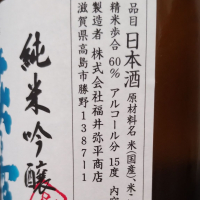 品目 日本酒 原材料名 米(国産)、米こ
精米歩合 60% アルコール分 15度 内容
製造者 株式会社福井弥平商店
滋賀県高島市勝野1387-1
純米吟醸